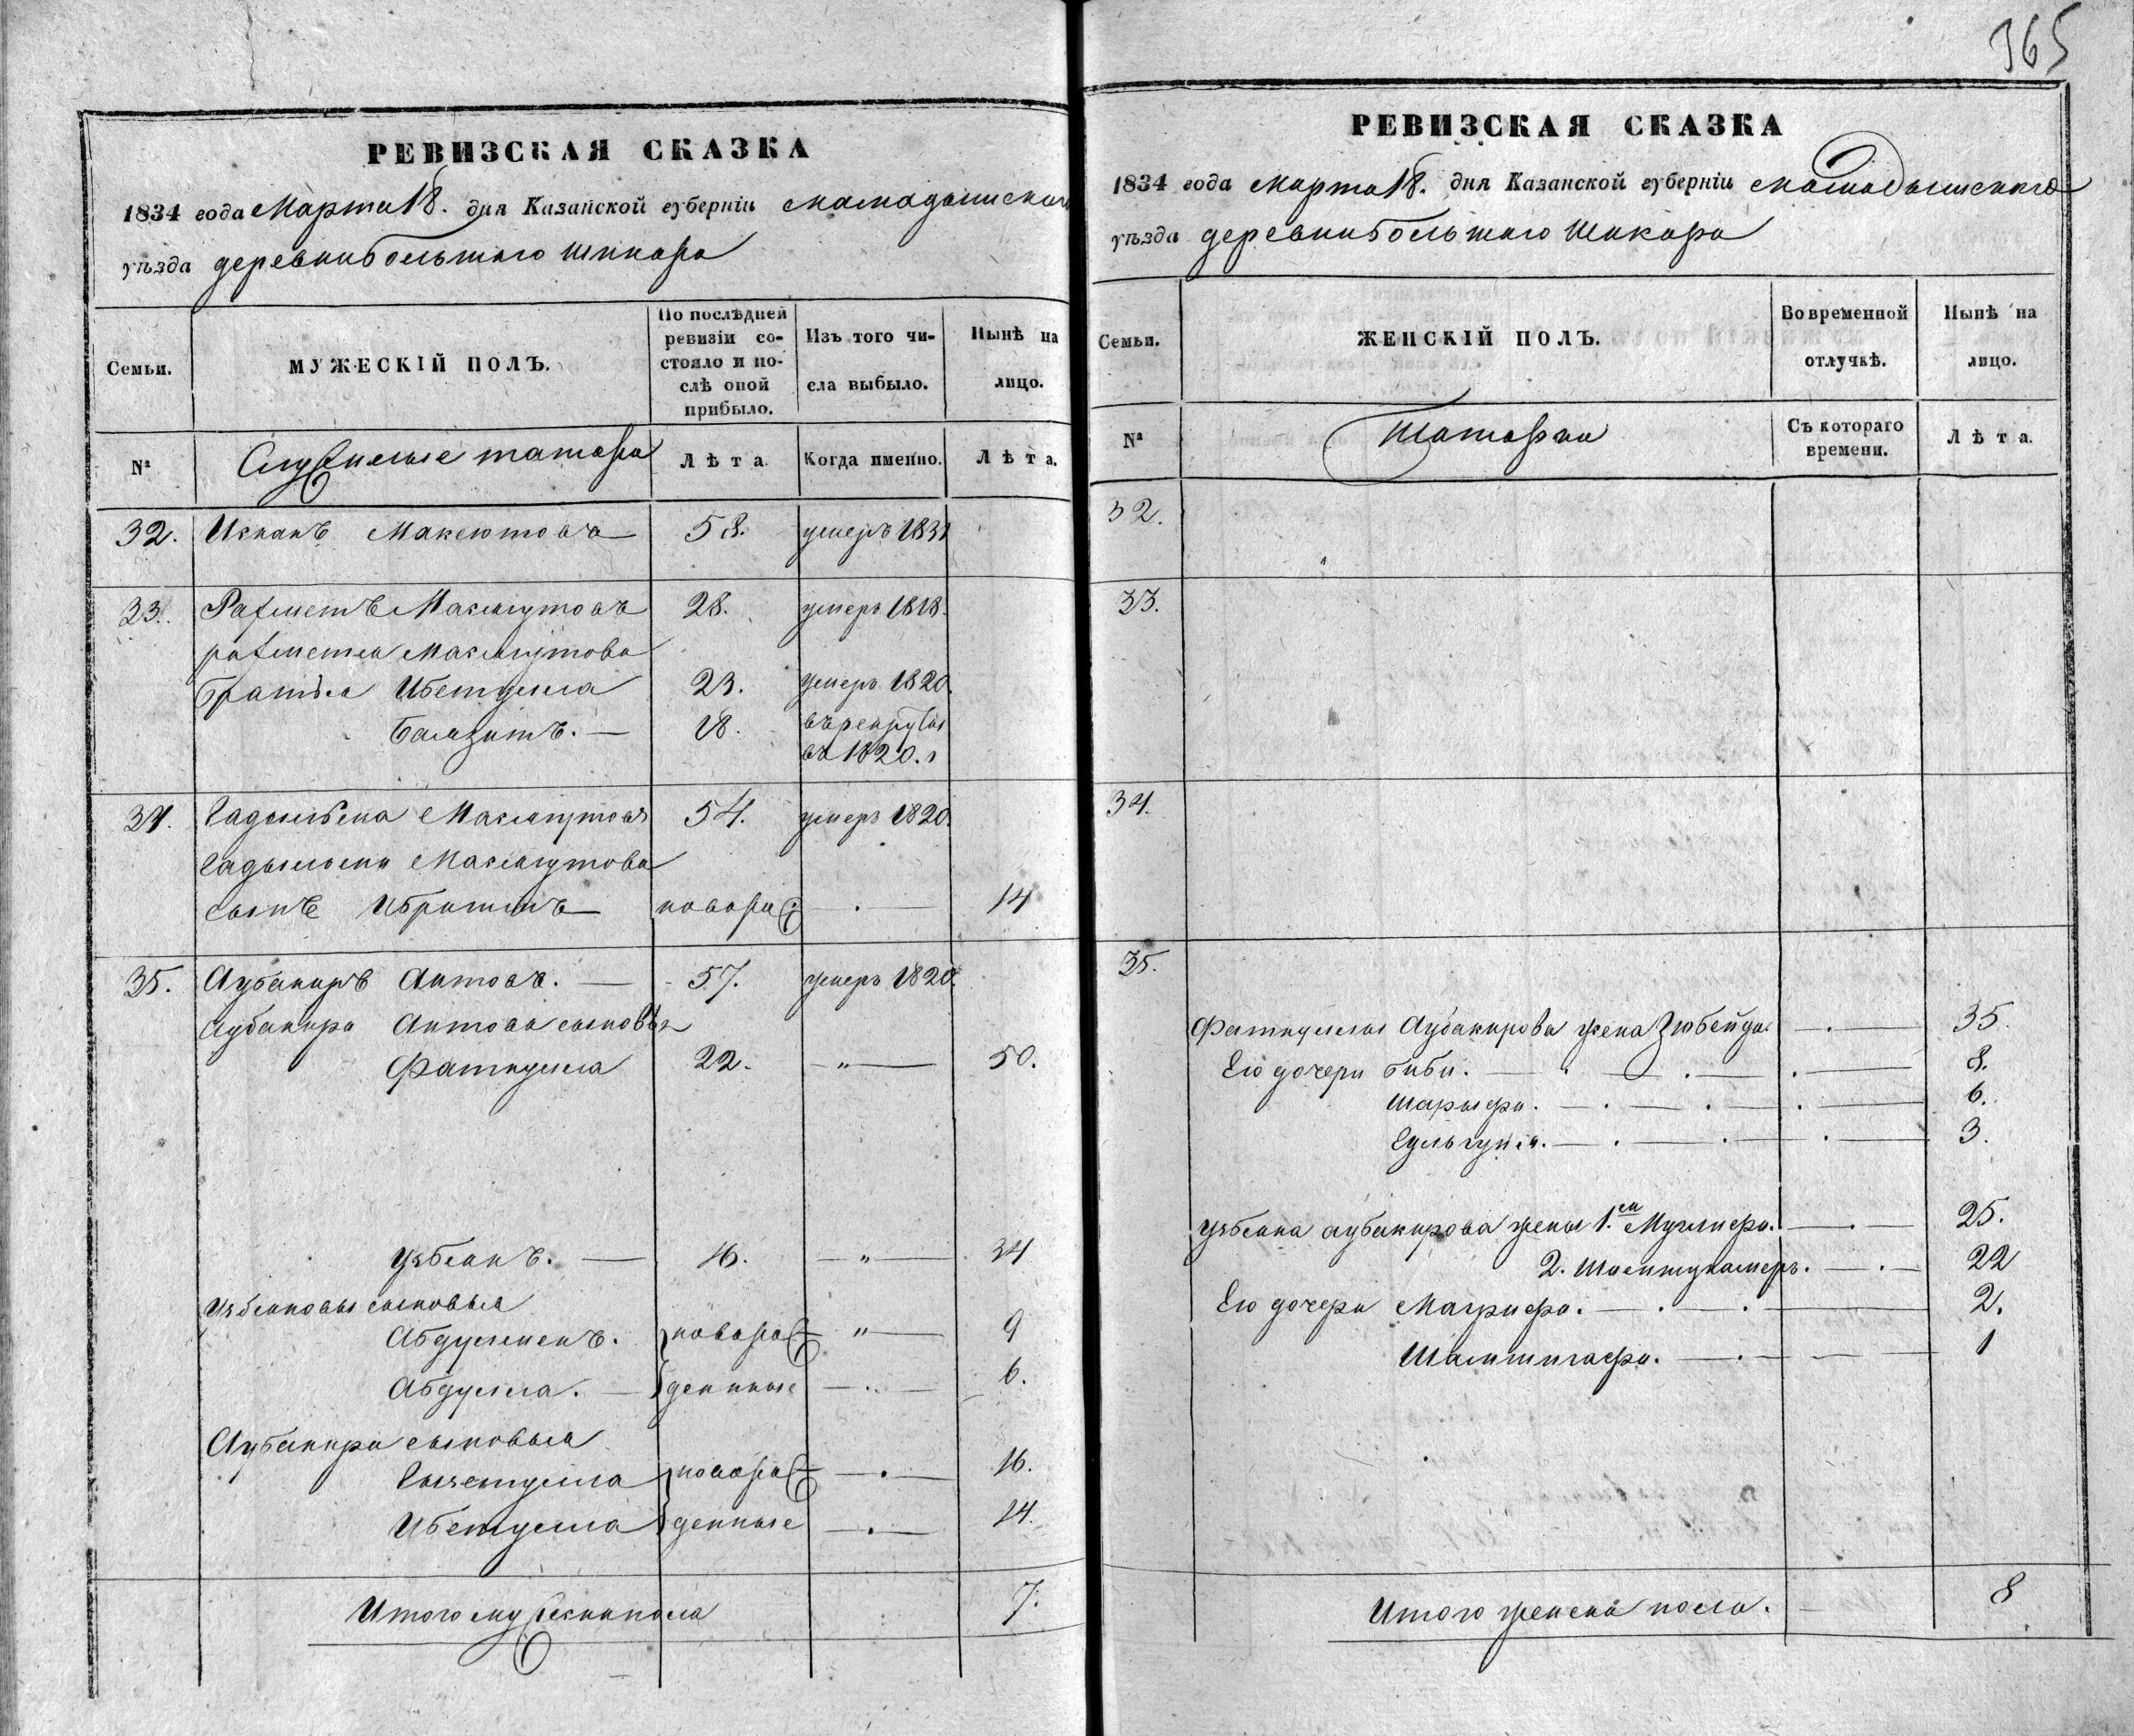 365
РЕВИЗСКАЯ СКАЗКА
1834 года Марта 18. дня Казанской губерніи Мамадышскаго
уѣзда деревни большаго Шикара
Семьи.
МУЖЕСКІЙ ПОЛЪ.
По послѣдней ревизіи состояло и послѣ оной прибыло.
Изъ того числа выбыло.
Нынѣ на лицо.
№
Служилые татара
Лѣта.
Когда именно.
Лѣта.
32. 58. умеръ 1831
33. Рахметъ Максютовъ 28. умеръ 1818.
рахметта Максютова
братья Ибетулла 23. умеръ 1820.
Баязитъ. — 18. въ рекруты
въ 1820. г
34. Максютовъ 54. умеръ 1820.
Максютова
сынъ Ибрагимъ — новорож — · — 14
35. Аубакиръ Аитовъ. — 57. умеръ 1820.
Аубакира Аитова сыновья
Фаткулла 22. — " — 50.
Узбякъ. — 16. — " — 34
Узбяковы сыновья
Абдулменъ. новорож — " — 9
Абдулла. — денные — .. — 6.
Аубакира сыновья
новорож — . — 16.
Ибетулла денные — . — 14.
Итого мужеска пола 7.
РЕВИЗСКАЯ СКАЗКА
1834 года Марта 18. дня Казанской губерніи Мамадышскаго
уѣзда деревни большаго Шикара
Семьи.
ЖЕНСКІЙ ПОЛЪ.
Во временной отлучкѣ.
Нынѣ на лицо.
№
Татарки
Съ котораго времени.
Лѣта.
32.
33.
34.
35.
Фаткуллы Аубакирова жена Зюбейда. — . — 35.
Его дочери Биби. — . — . — . — 8.
Шарифа. — . — . — . — 6.
— . — . — . — 3.
Узбяка аубакирова жены 1.ая — . — 25.
2. — . — 22
Его дочери Магрифа. — . — . — 2.
— . — — 1
Итого женска пола. — 8